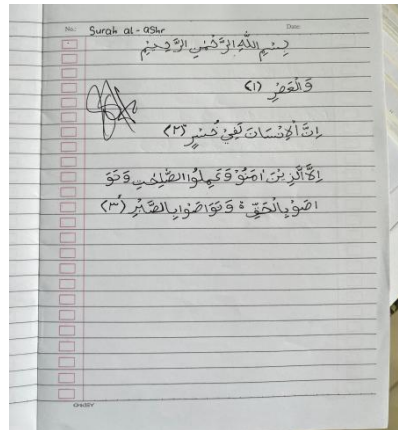 No.: Surah al-ashr Date:
بِسْمِ اللّٰهِ الرَّحْمٰنِ الرَّحِيْمِ
وَالْعَصْرِ (١)
اِنَّ الْاِنْسَانَ لَفِيْ خُسْرٍ (٢)
اِلَّا الَّذِيْنَ اٰمَنُوْ وَعَمِلُوا الصّٰلِحٰتِ وَتَوَ
اصَوْ بِالْحَقِّ ەۙ وَتَوَاصَوْا بِالصَّبْرِ (٣)